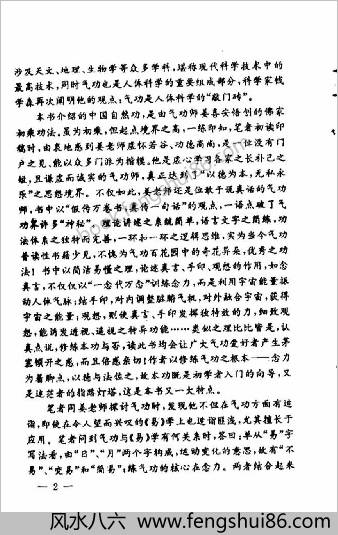 涉及天文、地理、生物学等众多学科，堪称现代科学技术中的
最高技术，同时气功也是人体科学的重要组成部分，科学家钱
学森再次阐明他的观点：气功是人体科学的“敲门砖”。
本书介绍的中国自然功，是由气功师姜喜悟创的佛家
初乘功法。虽为初乘，但起点境界之高，一练即知，笔者初读印
稿时，由衷地感到姜老师虚怀若谷、功德高尚，是一位没有门
户之见，能以众多门派为楷模，他是虚心学习各家之长补己之
短，且谦虚而诚实的气功师，真正达到了“以德为本，无私永
乐”之思想境界。不仅如此，姜老师还是位敢于说真话的气功
师。书中以“假传万卷书，真传一句话”的观点，一语点破了气
功界许多“神秘”。理论讲述之系统简单，语言文字之简练，功
法体系之独特而完善，一环扣一环之逻辑思维，实为当今气功
普读性书籍少见，不愧为气功百花园中的奇花异朵，优秀之功
法！书中以简洁易懂之理，论述真言、手印、观想的作用，如念
真言，不仅仅以“一念代万念”训练念力，而是利用宇宙能量振
动人体气脉；结手印，对内调整脏腑气机，对外融合宇宙，获得
宇宙之能量；观想，则使真言、手印发挥独特效的力，细致观
想，能诱发透视、遥视之特异功能……类似之理比比皆是，认
真点说，修练本功与否，读此书均会让广大气功爱好者产生茅
塞顿开之感，而且倍感亲切！作者以修练气功之根本——念力
为着脚点，以德与法位之，故本功既是初学者入门的向导，又
是迷茫者的指路灯塔，这是本书又一大特点。
笔者同姜老师探讨气功时，发现他不但在气功方面有造
诣，即使在令人望而兴叹的《易》学上也造诣颇见，尤其擅长于
应用。笔者问到气功与《易》学有何关系时，答曰：单从“易”字
写法看，由“日”、“月”两个字构成，运动变化的意思，故有“不
易”、“变易”和“简易”；练气功的核心在念力。两者结合起来
— 2 —
风水八六 www.fengshui86.com